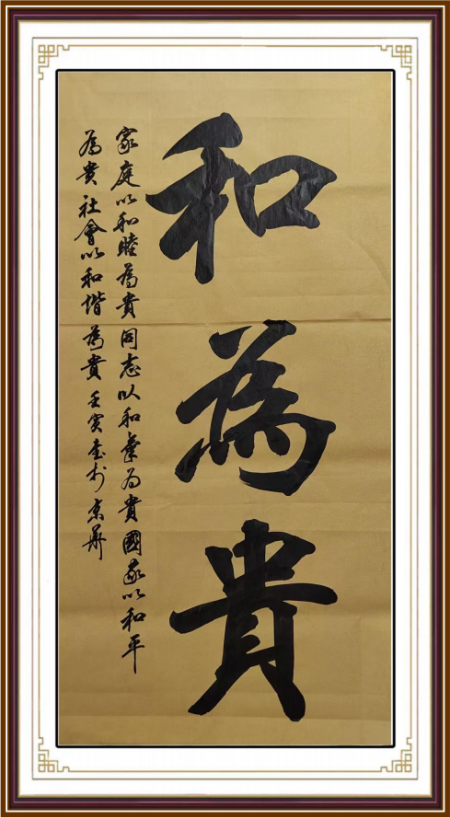 和為貴
家庭以和睦為貴同志以和氣为貴國家以和平
為貴社會以和谐為貴壬寅書於京華